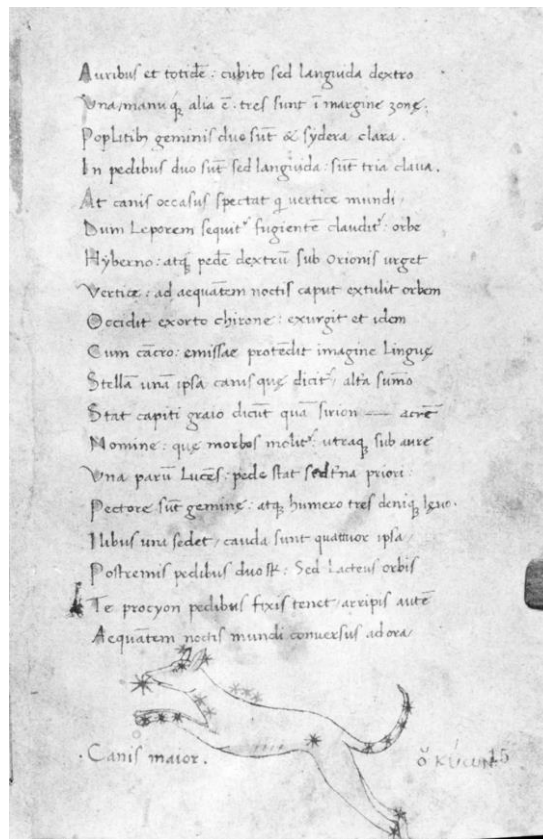 Auribus et totidē : cubito sed languida dextro
Una, manuq; alia ē : tres sunt ī margine zonę.
Poplitib; geminis duo sūt & sydera clara.
In pedibus duo sūt sed languida : sūt tria clava.
At canis occasus spectat q vertice mundi,
Dum Leporem sequit᷑ fugientē claudit᷑ : orbe
Hyberno : atq; pedē dextrū sub Orionis urget
Vertice : ad aequātem noctis caput extulit orbem
Occidit exorto chirone : exurgit et idem
Cum cācro : emissae protēdit imagine Linguę
Stellā unā ipsa canis quę dicit᷑, alta sūmo
Stat capiti graio dicūt quā sirion — acrē
Nomine : quę morbos molit᷑ : utraq; sub aure
Una parū Lucēs : pede stat priori :
Pectore sūt geminę : atq; humero tres deniq; lęvo.
Ilibus una sedet, cauda sunt quattuor ipsa,
Postremis pedibus duo : Sed Lacteus orbis
Te procyon pedibus fixis tenet, arripis autē
Aequātem noctis mundi conversus adora,
.Canis maior.
ὁ κύων 15